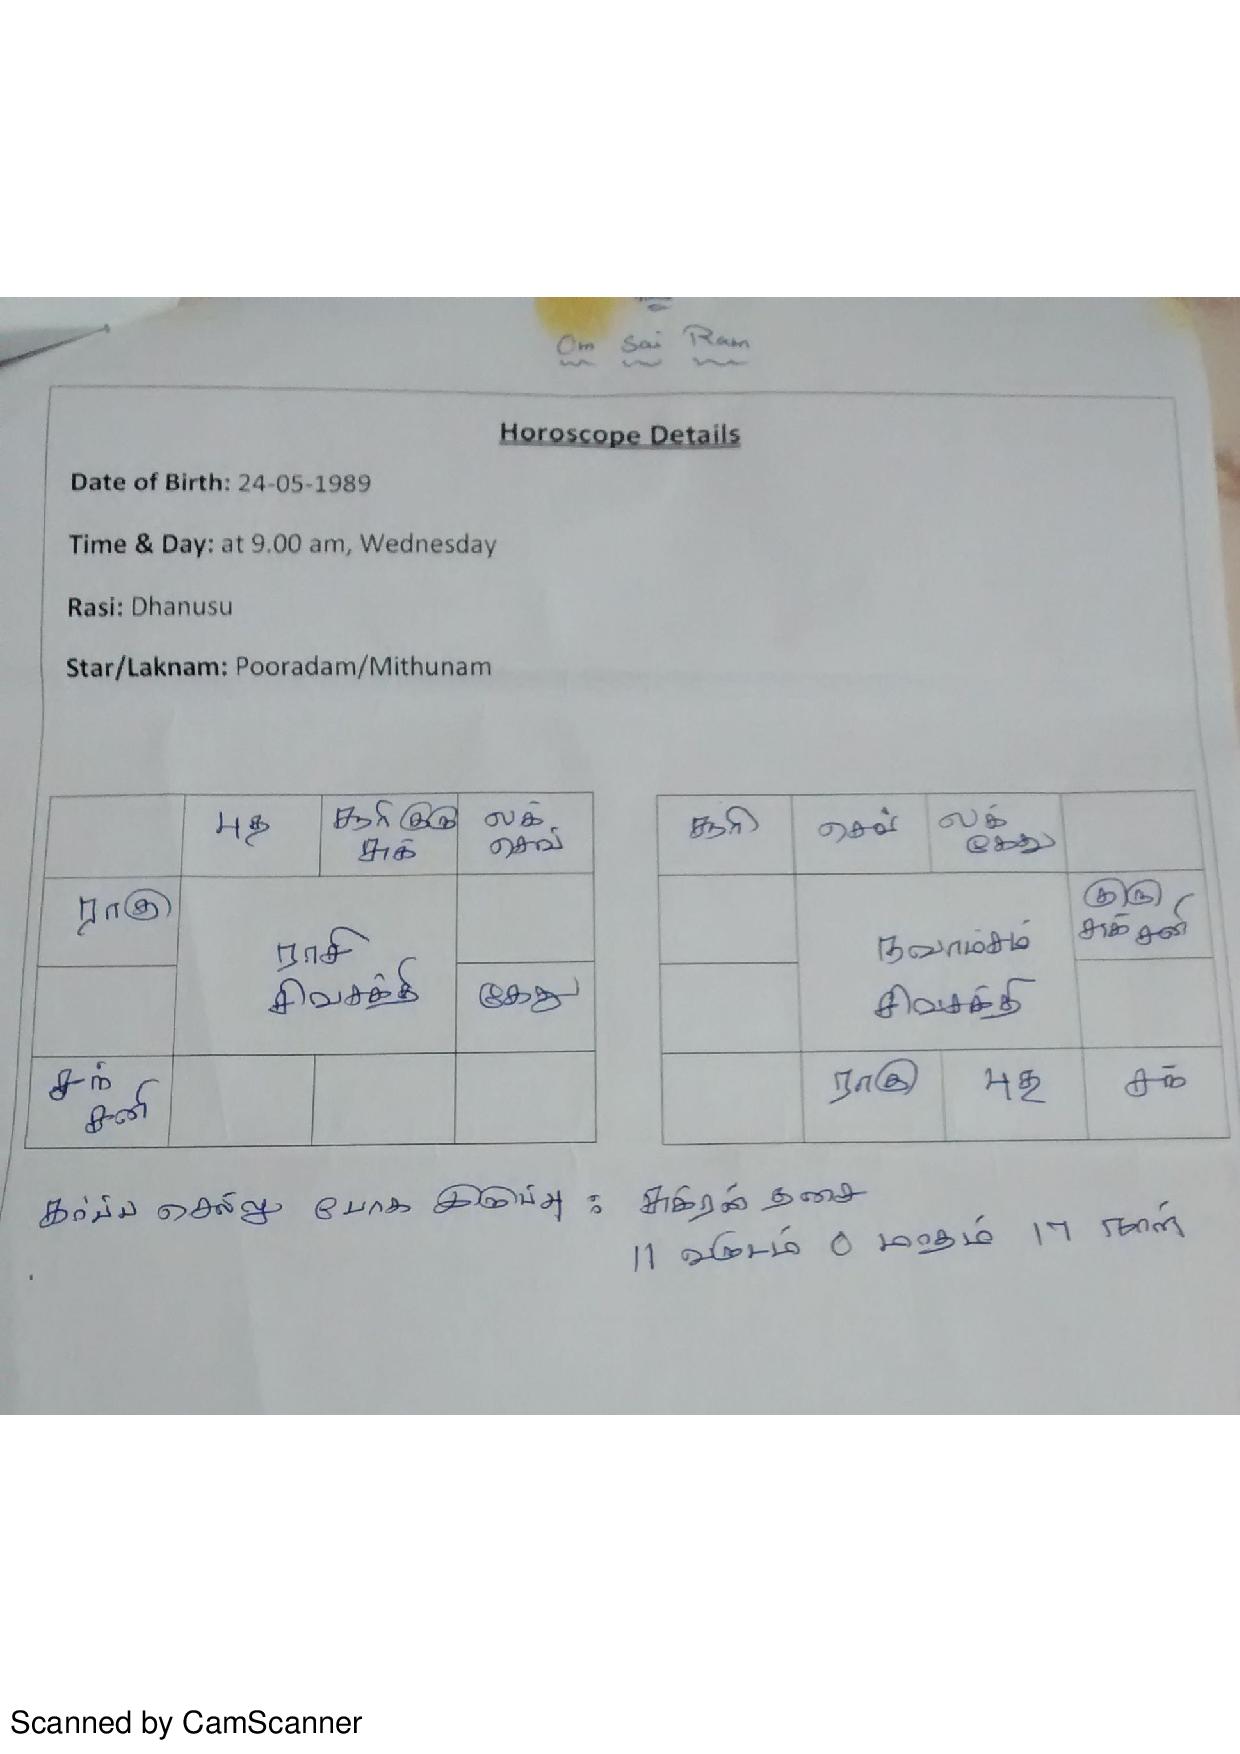 Om Sai Ram
Horoscope Details
Date of Birth: 24-05-1989
Time & Day: at 9.00 am, Wednesday
Rasi: Dhanusu
Star/Laknam: Pooradam/Mithunam
புத
சூரி குரு
சுக்
லக்
செவ்
ராகு
ராசி
சிவசக்தி
கேது
சந்
சனி
சூரி
செவ்
லக்
கேது
குரு
சுக் சனி
நவாம்சம்
சிவசக்தி
ராகு
புத
சந்
கர்ப்ப செல்லு போக இருப்பு : சுக்ரன் தசை
11 வருடம் 0 மாதம் 17 நாள்
Scanned by CamScanner